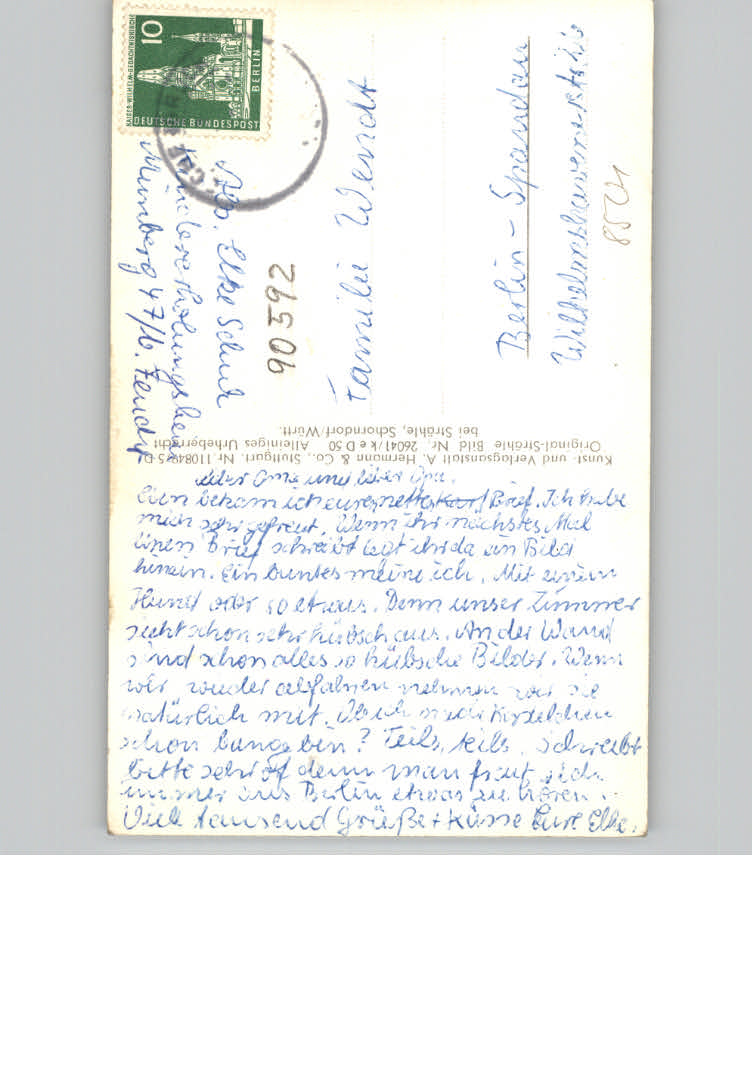 10
KAISER-WILHELM-GEDÄCHTNISKIRCHE
BERLIN
DEUTSCHE BUNDESPOST
Abs. Elke
Kindererholungsheim
90592
Familie Wendt
Berlin - Spandau
8521
Kunst- und Verlagsanstalt A. Hermann & Co., Stuttgart
Original-Strähle Bild Nr. 26041/k e D 50 Alleiniges Urheberrecht
bei Strähle, Schorndorf/Württ.
Liebe Omi und lieber Opa.
bekam ich euren netten Brief. Ich habe
mich sehr gefreut. Wenn ihr nächstes Mal
einen Brief schreibt legt ihr da ein Bild
hinein. Ein buntes meine ich. Mit einem
Hund oder so etwas. Denn unser Zimmer
sieht schon sehr hübsch aus. An der Wand
sind schon alles so hübsche Bilder. Wenn
wir wieder abfahren nehmen wir sie
natürlich mit. Ob ich
schon bin? Teils, teils. Schreibt
bitte sehr oft denn man freut sich
immer aus Berlin etwas zu hören.
Viele tausend Grüße + Küsse Eure Elke.